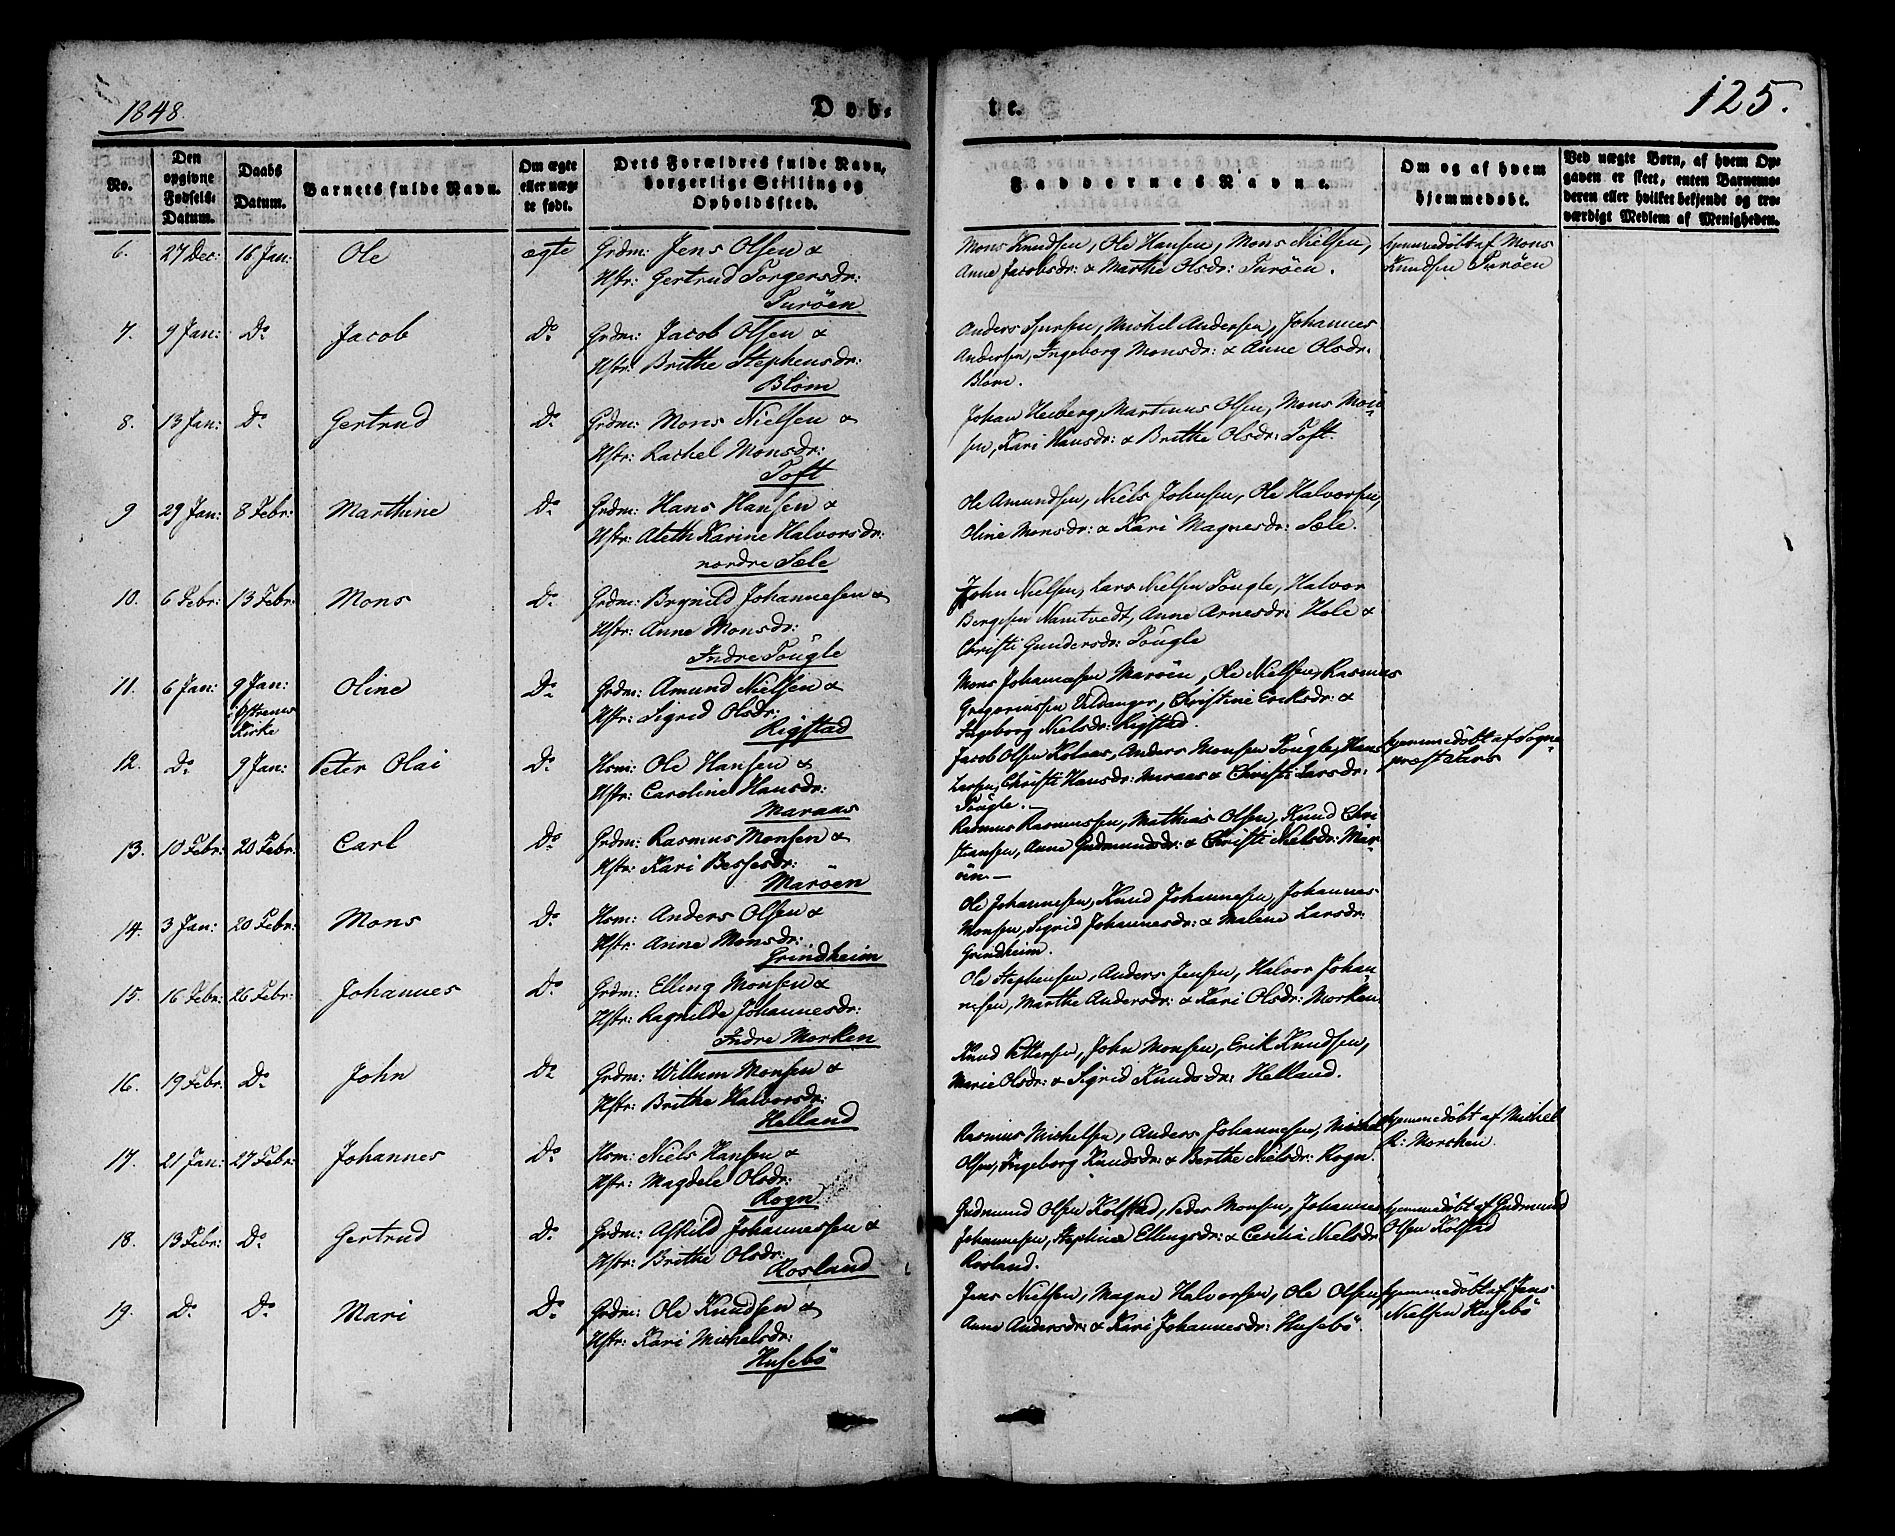 1848.
Døb-
te.
125.
No.
Den opgivne Fødsels-Datum.
Daabs Datum.
Barnets fulde Navn.
Om ægte eller uægte født.
Dets Forældres fulde Navn, borgerlige Stilling og Opholdssted.
Faddernes Navne.
Om og af hvem hjemmedøbt.
Ved uægte Børn, af hvem Opgaven er skeet, enten Barnemoderen eller hvilket bekjendt og troværdigt Medlem af Menigheden.
6. 27 Dec: 16 Jan: Ole ægte Grdm: Jens Olsen &
Hstr: Gertrud Torgersdr:
Turöen
Mons Knudsen, Ole Hansen, Mons Nielsen,
Anne Jacobsdr: & Marthe Olsdr: Turöen.
hjemmedöbt af Mons
Knudsen Turöen
7. 9 Jan: Do Jacob Do Grdm: Jacob Olsen &
Hstr: Brithe Stephensdr:
Blöm
Anders Sjursen, Michel Andersen, Johannes
Andersen, Ingeborg Monsdr: & Anne Olsdr:
Blöm.
8. 13 Jan: Do Gertrud Do Grdm: Mons Nielsen &
Hstr: Rachel Monsdr:
Toft
Johan Heiberg, Martinus Olsen, Mons Mon-
sen, Kari Hansdr: & Brithe Olsdr: Toft.
9 29 Jan: 8 Febr: Marthine Do Grdm: Hans Hansen &
Hstr: Aleth Karine Halvorsdr:
nordre Sæle
Ole Amundsen, Niels Johnsen, Ole Halvorsen,
Oline Monsdr: & Kari Magnesdr: Sæle.
10. 6 Febr: 13 Febr: Mons Do Grdm: Brynild Johannesen &
Hstr: Anne Monsdr:
Indre Töugle
John Nielsen, Lars Nielsen Tougle, Halvor
Bergesen Namtvedt, Anne Arnesdr: Hole &
Christi Gundersdr: Töugle
11. 6 Jan: 9 Jan: i Östrems Kirke Oline Do Grdm: Amund Nielsen &
Hstr: Sigrid Olsdr:
Rigstad
Mons Johannesen Maröen, Ole Nielsen, Rasmus
Gregoriussen Uldanger, Christine Eriksdr: &
Ingeborg Nielsdr: Rigstad.
12. Do 9 Jan: Peter Olai Do Hsm: Ole Hansen &
Hstr: Caroline Hansdr:
Maraas
Jacob Olsen Kolaas, Anders Monsen Töugle, Hans
Larsen, Christi Hansdr: Maraas & Christi Larsdr:
Töugle.
hjemmedöbt af Sogne-
præst Lars
13. 10 Febr: 20 Febr: Carl Do Grdm: Rasmus Monsen &
Hstr: Kari Bessesdr:
Maröen
Rasmus Rasmussen, Mathias Olsen, Knud Chri
stiansen, Anne Gudmundsdr: & Christi Nielsdr: Mar-
öen.
14. 3 Jan: 20 Febr: Mons Do Hsm: Anders Olsen &
Hstr: Anne Monsdr:
Grindheim
Ole Johannesen, Knud Johannesen, Johannes
Monsen, Sigrid Johannesdr: & Malene Larsdr:
Grindheim.
15. 16 Febr: 26 Febr: Johannes Do Grdm: Elling Monsen &
Hstr: Ragnilde Johannesdr:
Indre Morken
Ole Stephensen, Anders Jensen, Halvor Johan
nesen, Marthe Andersdr: & Kari Olsdr: Morken
16. 19 Febr: Do John Do Grdm: Willum Monsen &
Hstr: Brithe Halvorsdr:
Helland
Knud Pettersen, John Monsen, Erik Knudsen,
Marie Olsdr: & Sigrid Knudsdr: Helland.
17. 21 Jan: 27 Febr: Johannes Do Hsm: Niels Hansen &
Hstr: Magdele Olsdr:
Rogn
Rasmus Michelsen, Anders Johannesen, Michel
Olsen, Ingeborg Knudsdr: & Berthe Nielsdr: Rogn.
hjemmedöbt af Michel
R: Morchen.
18. 13 Febr: Do Gertrud Do Grdm: Askild Johannessen &
Hstr: Brithe Olsdr:
Rosland
Gudmund Olsen Kolstad, Peder Monsen, Johannes
Johannesen, Stephine Ellingsdr: & Cecilia Nielsdr
Rosland.
hjemmedöbt af Gudmund
Olsen Kolstad
19. Do Do Mari Do Grdm: Ole Knudsen &
Hstr: Kari Michelsdr:
Husebö
Jens Nielsen, Magne Halvorsen, Ole Olsen,
Anne Andersdr: & Kari Johannesdr: Husebö.
hjemmedöbt af Jens
Nielsen Husebö